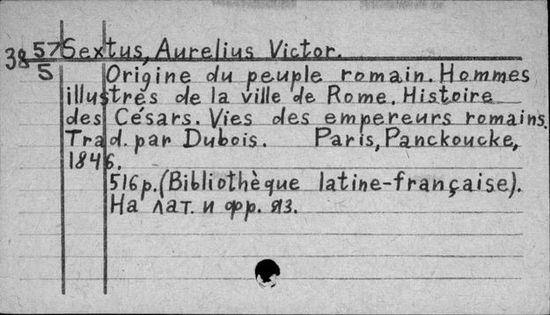 38 57/5 Sextus, Aurelius Victor.
Origine du peuple romain. Hommes
illustres de la ville de Rome. Histoire
des Césars. Vies des empereurs romains.
Trad. par Dubois. Paris, Panckoucke,
1846.
516 p. (Bibliothèque latine-française).
На лат. и фр. яз.